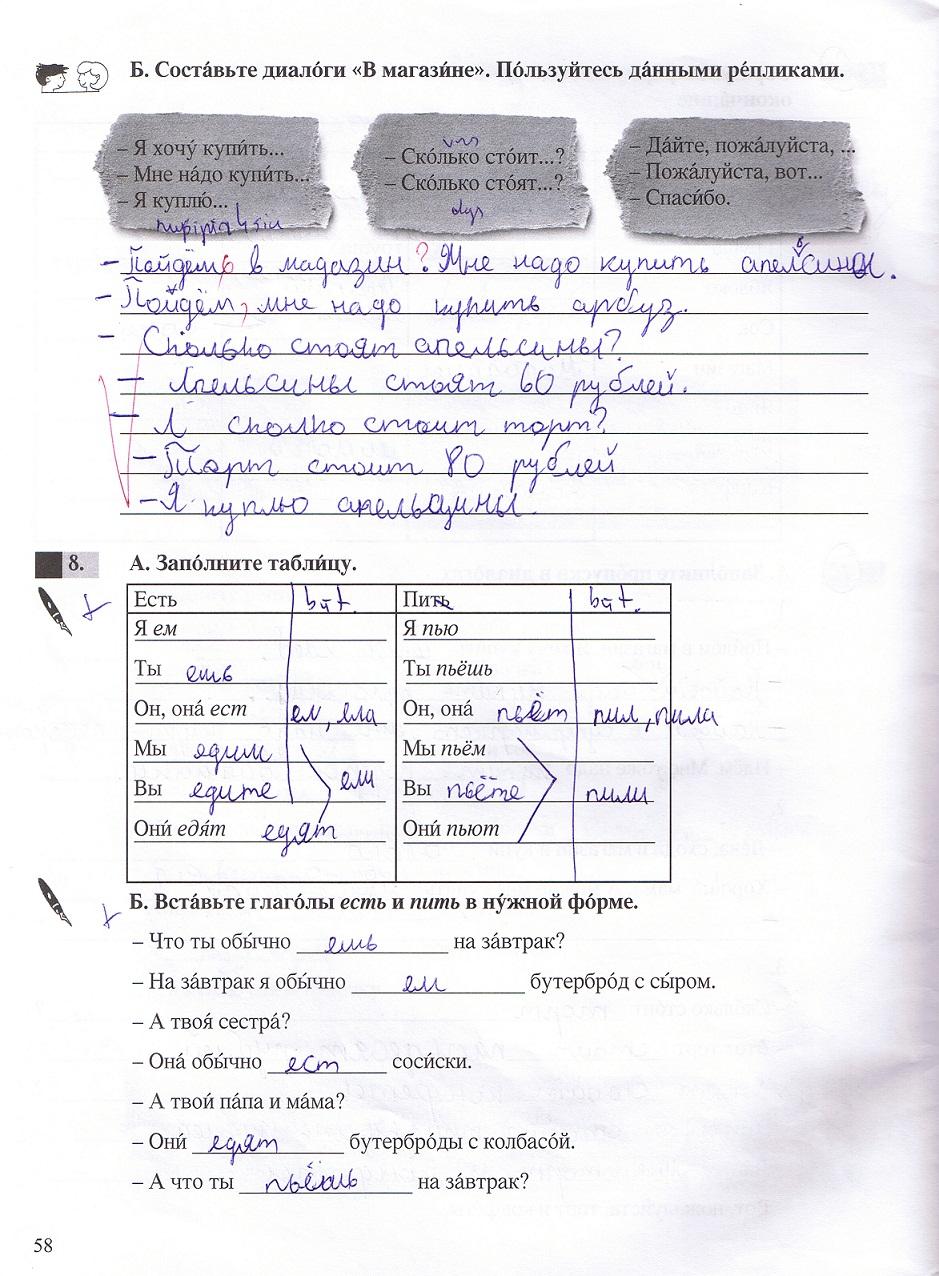 Б. Соста́вьте диало́ги «В магази́не». По́льзуйтесь да́нными ре́пликами.
– Я хочу́ купи́ть...
– Мне на́до купи́ть...
– Я куплю́...
– Ско́лько сто́ит...?
– Ско́лько сто́ят...?
– Да́йте, пожа́луйста, ...
– Пожа́луйста, вот...
– Спаси́бо.
– Пойдём в магазин? Мне надо купить апельсины.
– Пойдём, мне надо купить арбуз.
– Сколько стоят апельсины?
– Апельсины стоят 60 рублей.
– А сколко стоит торт?
– Торт стоит 80 рублей
– Я куплю апельцины.
8. А. Запо́лните табли́цу.
Есть būt. Пить būt.
Я ем Я пью
Ты ешь Ты пьёшь
Он, она́ ест ел, ела Он, она́ пьёт пил, пила
Мы едим Мы пьём
Вы едите ели Вы пьёте пили
Они́ едя́т едят Они́ пьют
Б. Вста́вьте глаго́лы есть и пить в ну́жной фо́рме.
– Что ты обы́чно ешь на за́втрак?
– На за́втрак я обы́чно ем бутербро́д с сы́ром.
– А твоя́ сестра́?
– Она́ обы́чно ест соси́ски.
– А твои́ па́па и ма́ма?
– Они́ едят бутербро́ды с колбасо́й.
– А что ты пьёшь на за́втрак?
58